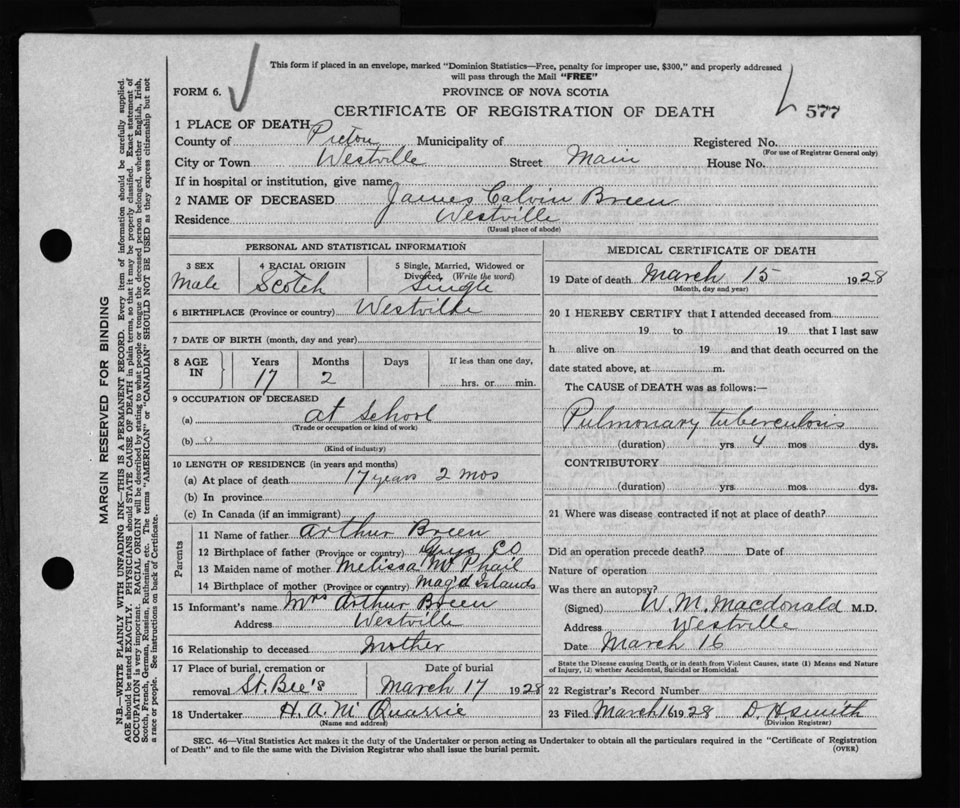 This form if placed in an envelope, marked "Dominion Statistics—Free, penalty for improper use, $300," and properly addressed
will pass through the Mail "FREE"
FORM 6.
PROVINCE OF NOVA SCOTIA
CERTIFICATE OF REGISTRATION OF DEATH
577
1 PLACE OF DEATH
County of Pictou Municipality of Registered No.
(For use of Registrar General only)
City or Town Westville Street Main House No.
If in hospital or institution, give name
2 NAME OF DECEASED James Calvin Breen
Residence Westville
(Usual place of abode)
PERSONAL AND STATISTICAL INFORMATION
3 SEX 4 RACIAL ORIGIN 5 Single, Married, Widowed or
Divorced, (Write the word)
Male Scotch Single
6 BIRTHPLACE (Province or country) Westville
7 DATE OF BIRTH (month, day and year)
8 AGE IN Years Months Days If less than one day,
17 2 hrs. or min.
9 OCCUPATION OF DECEASED
(a) at School
(Trade or occupation or kind of work)
(b)
(Kind of industry)
10 LENGTH OF RESIDENCE (in years and months)
(a) At place of death 17 years 2 mos
(b) In province
(c) In Canada (if an immigrant)
Parents
11 Name of father Arthur Breen
12 Birthplace of father (Province or country) Guys Co
13 Maiden name of mother Melissa McPhail
14 Birthplace of mother (Province or country) Mag'd Islands
15 Informant's name Mrs Arthur Breen
Address Westville
16 Relationship to deceased Mother
17 Place of burial, cremation or Date of burial
removal St. Bee's March 17 1928
18 Undertaker H. A. McQuarrie
(Name and address)
MEDICAL CERTIFICATE OF DEATH
19 Date of death March 15 1928
(Month, day and year)
20 I HEREBY CERTIFY that I attended deceased from
19 to 19 that I last saw
h alive on 19 and that death occurred on the
date stated above, at m.
The CAUSE of DEATH was as follows:—
Pulmonary tuberculosis
(duration) yrs 4 mos dys.
CONTRIBUTORY
(duration) yrs mos dys.
21 Where was disease contracted if not at place of death?
Did an operation precede death? Date of
Nature of operation
Was there an autopsy?
(Signed) W. M. Macdonald M.D.
Address Westville
Date March 16
State the Disease causing Death, or in death from Violent Causes, state (1) Means and Nature
of Injury, (2) whether Accidental, Suicidal or Homicidal.
22 Registrar's Record Number
23 Filed March 16 1928 D. H. Smith
(Division Registrar)
SEC. 46—Vital Statistics Act makes it the duty of the Undertaker or person acting as Undertaker to obtain all the particulars required in the "Certificate of Registration
of Death" and to file the same with the Division Registrar who shall issue the burial permit.
(OVER)
MARGIN RESERVED FOR BINDING
N.B.—WRITE PLAINLY WITH UNFADING INK—THIS IS A PERMANENT RECORD. Every item of information should be carefully supplied.
AGE should be stated EXACTLY. PHYSICIANS should STATE CAUSE OF DEATH in plain terms, so that it may be properly classified. Exact statement of
OCCUPATION is very important. RACIAL ORIGIN will be described by stating to what people or tongue the deceased person belonged, whether English, Irish,
Scotch, French, German, Russian, Ruthenian, etc. The terms "AMERICAN" or "CANADIAN" SHOULD NOT BE USED as they express citizenship but not
a race or people. See instructions on back of Certificate.